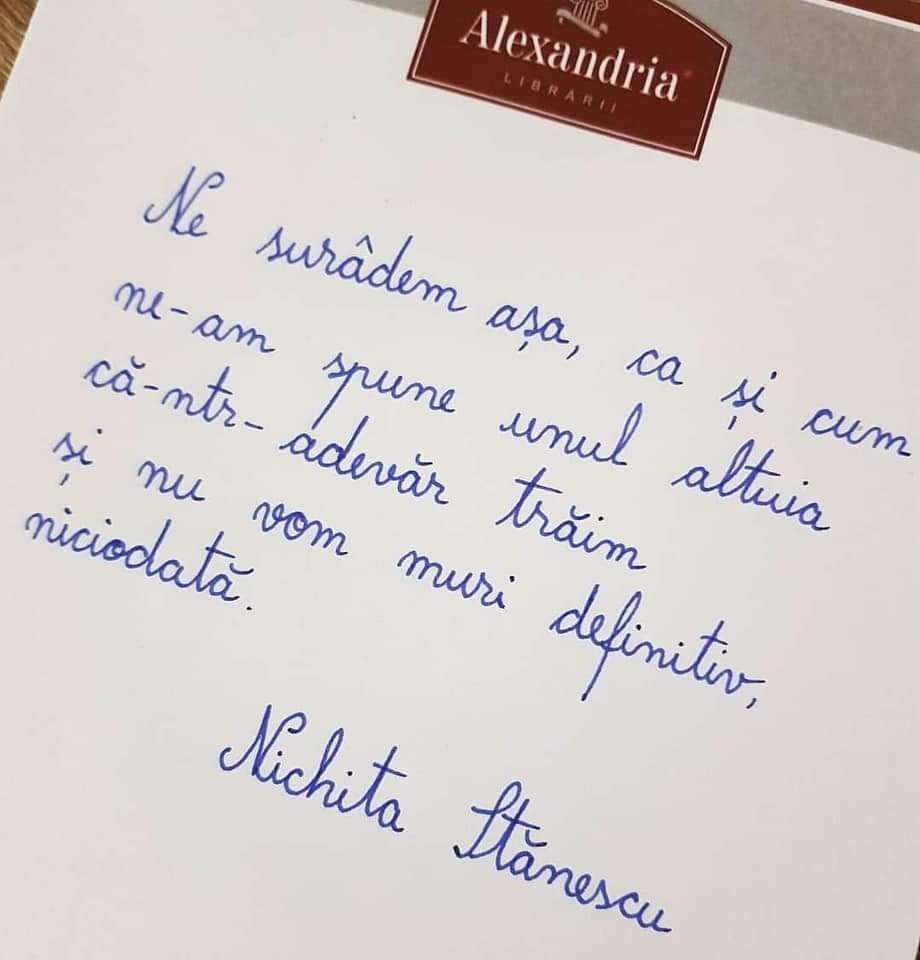 Alexandria
LIBRĂRII
Ne surâdem așa, ca și cum
ne-am spune unul altuia
că-ntr-adevăr trăim
și nu vom muri definitiv,
niciodată.
Nichita Stănescu